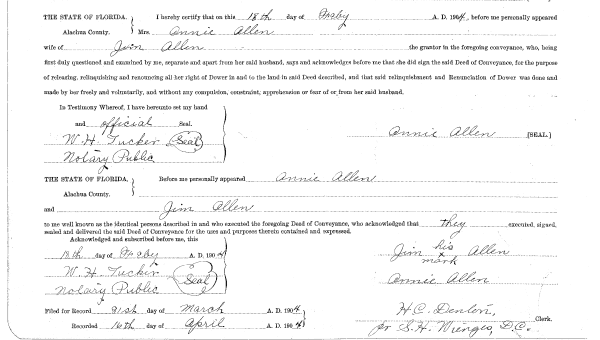 THE STATE OF FLORIDA, I hereby certify that on this 18th day of A. D. 1904, before me personally appeared
Alachua County. Mrs. Annie Allen
wife of Jim Allen the grantor in the foregoing conveyance, who, being
first duly questioned and examined by me, separate and apart from her said husband, says and acknowledges before me that she did sign the said Deed of Conveyance, for the purpose
of releasing, relinquishing and renouncing all her right of Dower in and to the land in said Deed described, and that said relinquishment and Renunciation of Dower was done and
made by her freely and voluntarily, and without any compulsion, constraint, apprehension or fear of or from her said husband.
In Testimony Whereof, I have hereunto set my hand
and official Seal.
W. H. Tucker Seal
Annie Allen [SEAL.]
Notary Public
THE STATE OF FLORIDA, Before me personally appeared Annie Allen
Alachua County.
and Jim Allen
to me well known as the identical persons described in and who executed the foregoing Deed of Conveyance, who acknowledged that they executed, signed,
sealed and delivered the said Deed of Conveyance for the uses and purposes therein contained and expressed.
Acknowledged and subscribed before me, this
18th day of A. D. 1904
Jim his x mark Allen
W. H. Tucker Seal
Annie Allen
Notary Public
Filed for Record 21st day of March A. D. 1904
H. C. Denton, Clerk.
Recorded 16th day of April A. D. 1904
pr S. H. Wienges, D. C.